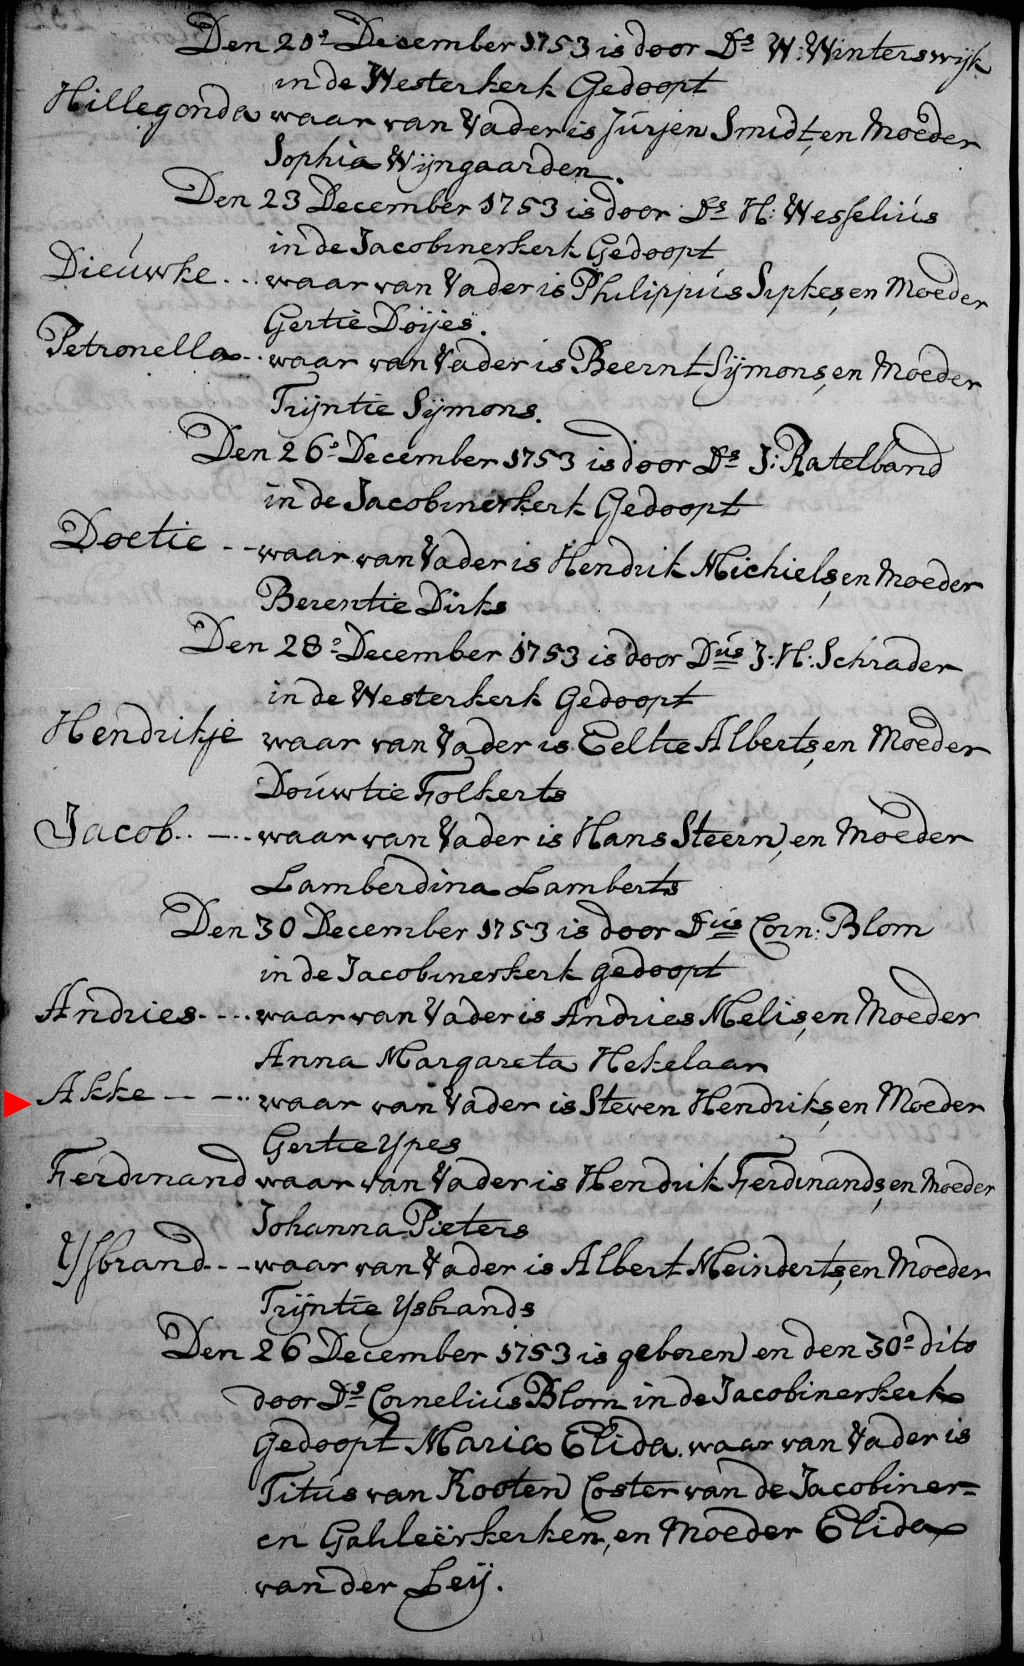 Den 20e December 1753 is door Ds W: Winterswijk
in de Westerkerk Gedoopt
Hillegonda waar van Vader is Jurjen Smidt, en Moeder
Sophia Wijngaarden.
Den 23 December 1753 is door Ds H: Wesselius
in de Jacobinerkerk Gedoopt
Dieuwke... waar van Vader is Philippus Sipkes, en Moeder
Gertie Doijes.
Petronella.. waar van Vader is Beernt Sijmons, en Moeder
Trijntie Sijmons.
Den 26e December 1753 is door Ds J: Ratelband
in de Jacobinerkerk Gedoopt
Doetie -- waar van Vader is Hendrik Michiels, en Moeder
Berentie Dirks
Den 28e December 1753 is door Dus J: H: Schrader
in de Westerkerk Gedoopt
Hendrikje waar van Vader is Eeltie Alberts, en Moeder
Douwtie Folkerts
Jacob.. -.. waar van Vader is Hans Steern, en Moeder
Lamberdina Lamberts
Den 30 December 1753 is door Dus Corn: Blom
in de Jacobinerkerk gedoopt
Andries.... waar van Vader is Andries Melis, en Moeder
Anna Margareta Hekelaar
Akke -- -.. waar van Vader is Steven Hendriks, en Moeder
Gertie Ypes
Ferdinand waar van Vader is Hendrik Ferdinands, en Moeder
Johanna Pieters
Ysbrand.. -- waar van Vader is Albert Meinderts, en Moeder
Trijntie Ysbrands
Den 26 December 1753 is geboren en den 30e dito
door Ds Cornelius Blom in de Jacobinerkerk
Gedoopt Maria Elida. waar van Vader is
Titus van Kooten Coster van de Jacobiner=
en Galileërkerken, en Moeder Elida
van der Leij.